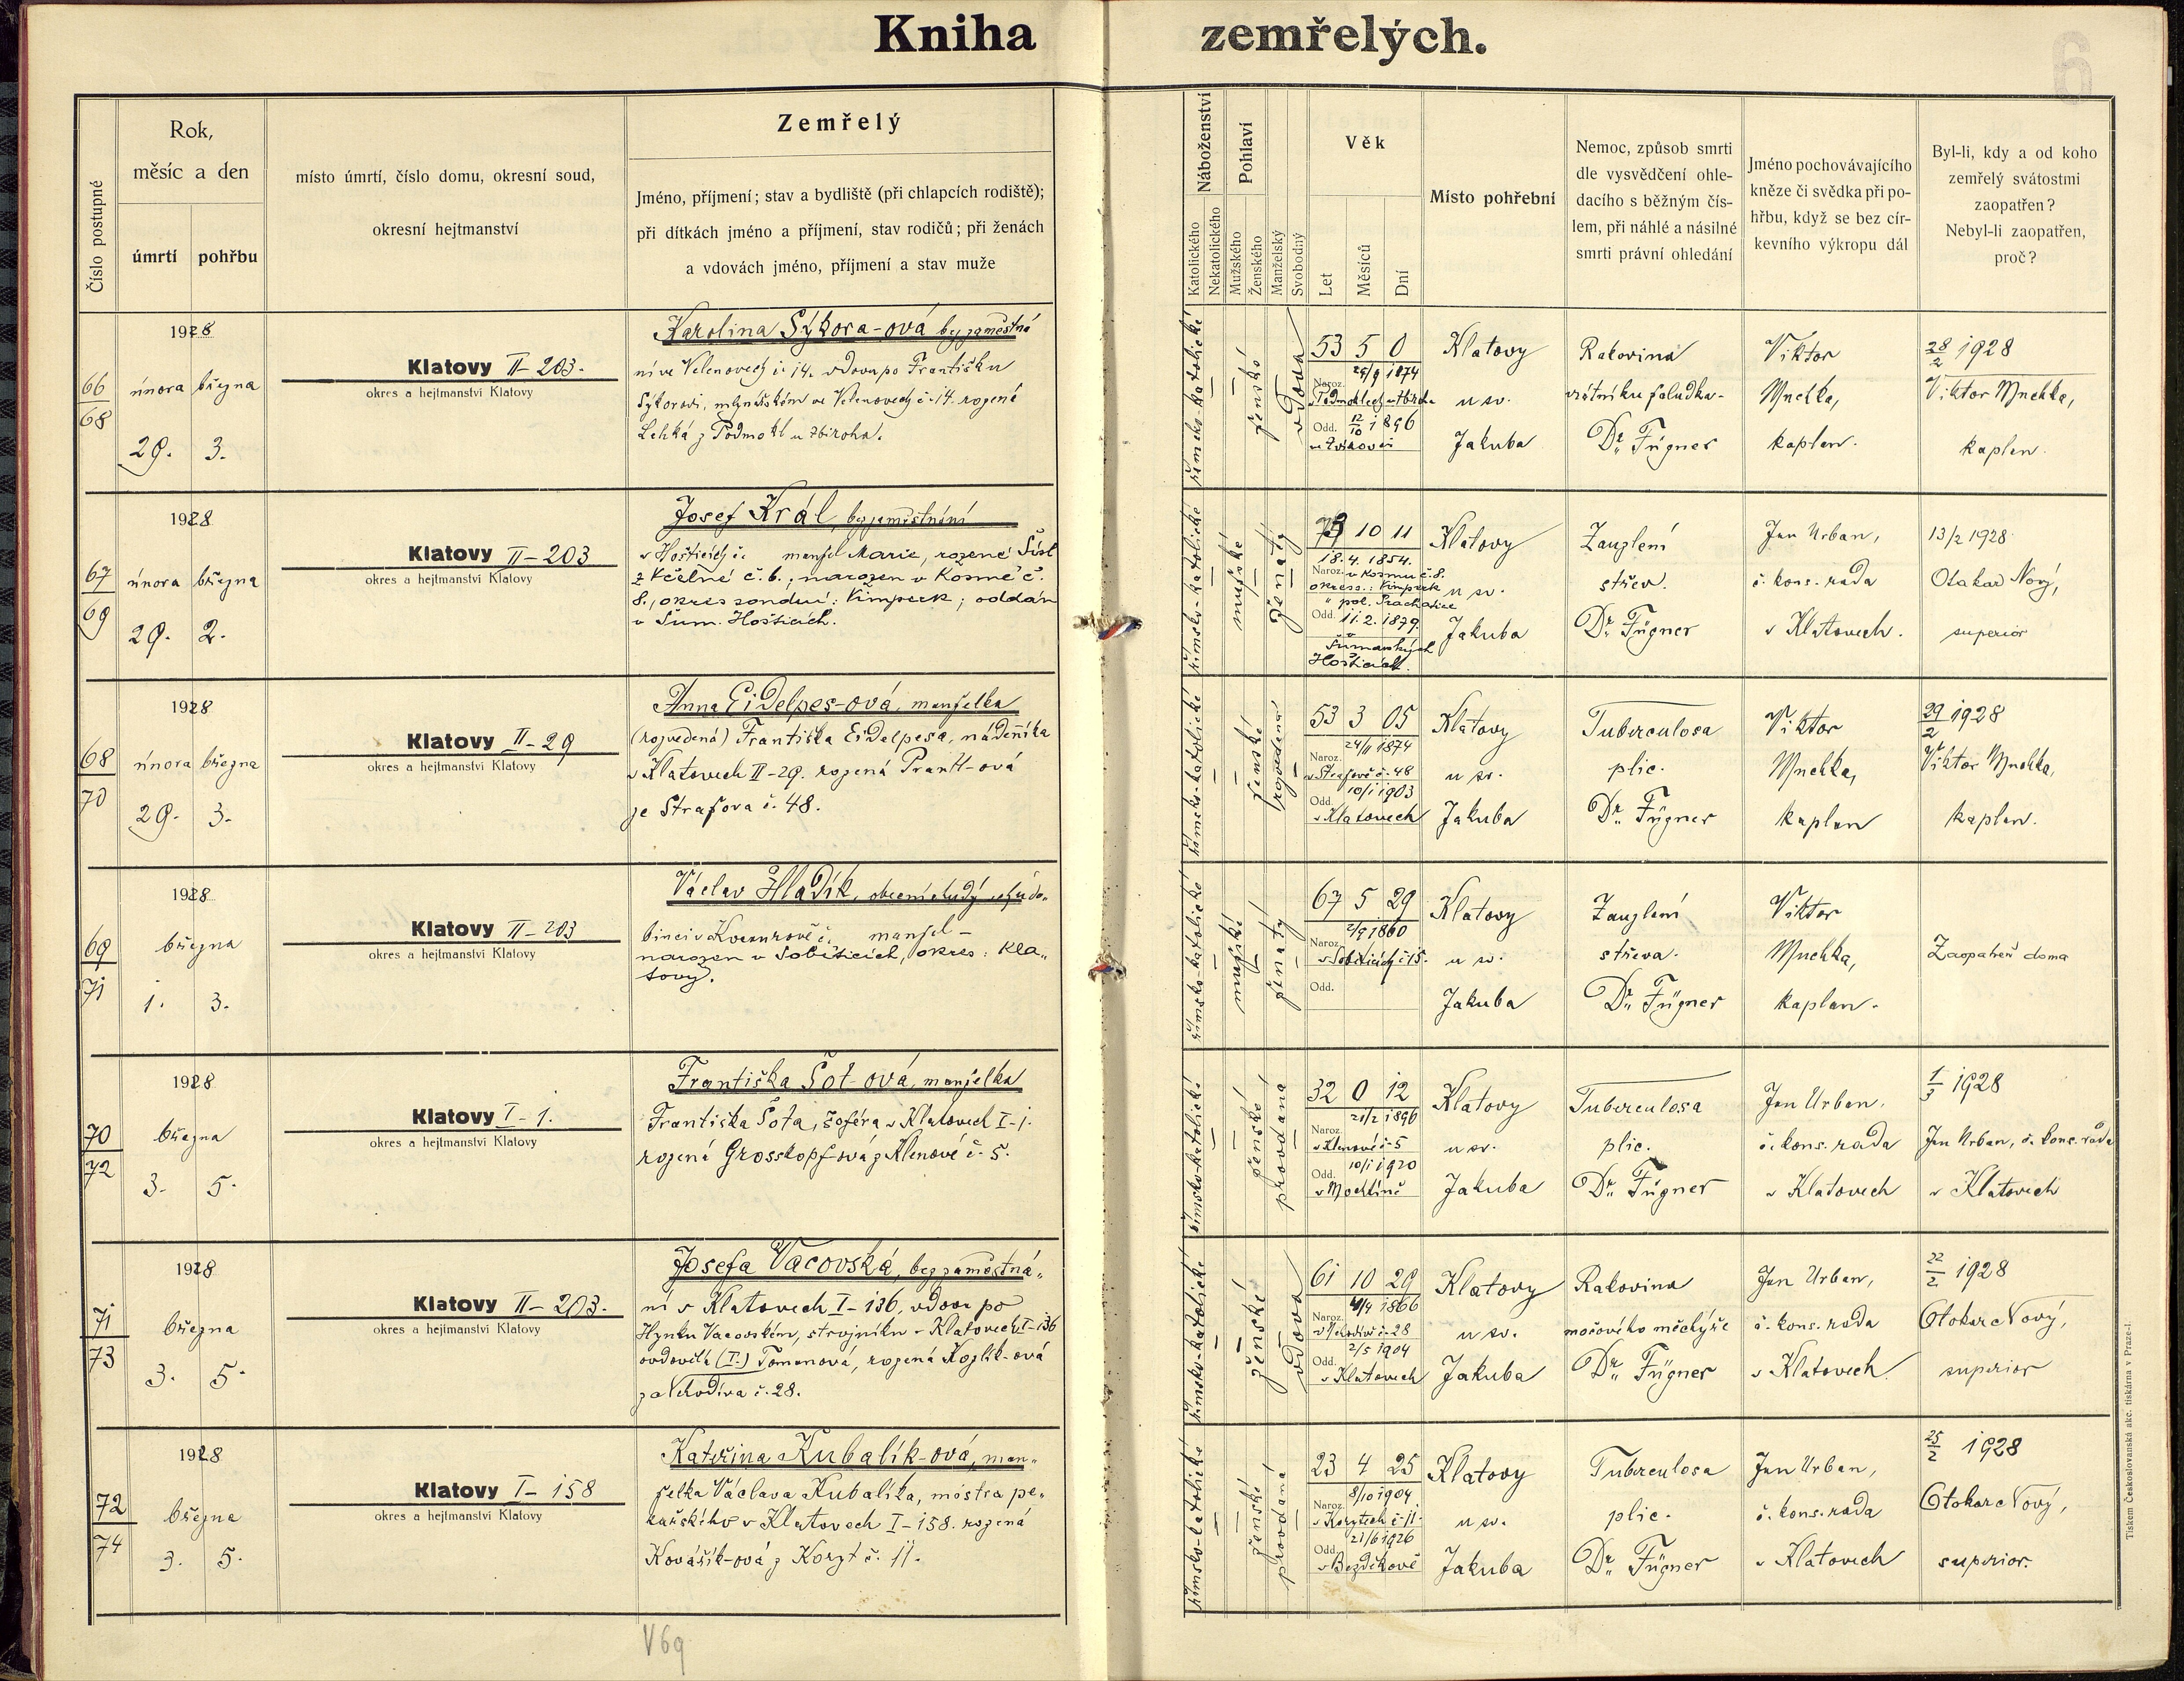 Kniha zemřelých.
6
Číslo postupné
Rok,
měsíc a den
úmrtí
pohřbu
místo úmrtí, číslo domu, okresní soud,
okresní hejtmanství
Zemřelý
Jméno, příjmení; stav a bydliště (při chlapcích rodiště);
při dítkách jméno a příjmení, stav rodičů; při ženách
a vdovách jméno, příjmení a stav muže
Náboženství
Katolického
Nekatolického
Pohlaví
Mužského
Ženského
Manželský
Svobodný
Věk
Let
Měsíců
Dní
Místo pohřební
Nemoc, způsob smrti
dle vysvědčení ohle-
dacího s běžným čís-
lem, při náhlé a násilné
smrti právní ohledání
Jméno pochovávajícího
kněze či svědka při po-
hřbu, když se bez cír-
kevního výkropu dál
Byl-li, kdy a od koho
zemřelý svátostmi
zaopatřen?
Nebyl-li zaopatřen,
proč?
1928
66
68
února března
29. 3.
Klatovy II-203.
okres a hejtmanství Klatovy
Karolina Sýkora-ová bez zaměstná
ní ve Velenovech č. 14. vdova po Františku
Sýkorovi, mlynářském ve Velenovech č. 14. rozená
Lehká z Podmokl u Zbiroha.
římsko-katolické
ženské
vdova
53 5 0
Naroz. 25/9 1874
v Podmoklech u Zbiroha
Odd. 12/10 1896
Klatovy
u sv.
Jakuba
Rakovina
vrátníku žaludka-
Dr. Fügner
Viktor
Mnchka,
kaplan.
28/2 1928
Viktor Mnchka,
kaplan.
1928
67
69
února března
29. 2.
Klatovy II-203
okres a hejtmanství Klatovy
Josef Král, bez zaměstnání
v Hošticích č. manžel Marie, rozené Šísl
z Včelné č. 6.; narozen v Kosmě č.
8., okres soudní: Vimperk; oddán
v Šum. Hošticích.
římsko-katolické
mužské
ženatý
73 10 11
18. 4. 1854.
Naroz. v Kosmu č. 8.
okress.: Vimperk
" pol. Prachatice
Odd. 11. 2. 1879.
v
Šumavských
Hošticích.
Klatovy
u sv.
Jakuba
Zauzlení
střev.
Dr. Fügner
Jan Urban,
č. kons. rada
v Klatovech.
13/2 1928
Otakar Nový,
superior
1928
68
70
února března
29. 3.
Klatovy II-29
okres a hejtmanství Klatovy
Anna Eidelpes-ová, manželka
(rozvedená) Františka Eidelpesa, nádeníka
v Klatovech II-29. rozená Prantl-ová
ze Stražova č. 48.
římsko-katolické
ženské
rozvedená
53 3 05
Naroz. 24/11 1874
v Stražově č. 48
Odd. 10/1 1903
v Klatovech
Klatovy
u sv.
Jakuba
Tuberculosa
plic.
Dr. Fügner
Viktor
Mnchka,
kaplan
29/2 1928
Viktor Mnchka,
kaplan.
1928
69
71
března
1. 3.
Klatovy II-203
okres a hejtmanství Klatovy
Václav Hladík, obecní chudý v chudo-
binci v manžel -
narozen v Soběticích, okres: Kla-
tovy.
římsko-katolické
mužské
ženatý
67 5 29
Naroz. 2/9 1860
v Soběticích č 15.
Odd.
Klatovy
u sv.
Jakuba
Zauzlení
střeva.
Dr. Fügner
Viktor
Mnchka,
kaplan.
Zaopatřen doma
1928
70
72
března
3. 5.
Klatovy I-1.
okres a hejtmanství Klatovy
Františka Šot-ová, manželka
Františka Šota, šoféra v Klatovech I-1.
rozená Grosskopf-ová z Klenové č. 5.
římsko-katolické
ženské
provdaná
32 0 12
Naroz. 21/2 1896
v Klenové č. 5
Odd. 10/1 1920
v Mochtíně
Klatovy
u sv.
Jakuba
Tuberculosa
plic.
Dr. Fügner
Jan Urban,
č. kons. rada
v Klatovech
1/3 1928
Jan Urban, č. kons. rada
v Klatovech
1928
71
73
března
3. 5.
Klatovy II-203.
okres a hejtmanství Klatovy
Josefa Vacovská, bez zaměstná-
ní v Klatovech I-136, vdova po
Hynku Vacovském, strojníku v Klatovech I-136
ovdovělá (I.) Tomanová, rozená Kozlík-ová
za Vchodiva č. 28.
římsko-katolické
ženské
vdova
61 10 29
Naroz. 4/4 1866
č. 28
Odd. 2/5 1904
v Klatovech
Klatovy
u sv.
Jakuba
Rakovina
močového měchýře
Dr. Fügner
Jan Urban,
č. kons. rada
v Klatovech
22/2 1928
Otokar Nový,
superior
1928
72
74
března
3. 5.
Klatovy I-158
okres a hejtmanství Klatovy
Kateřina Kubalík-ová, man-
želka Václava Kubalíka, mistra pe-
kařského v Klatovech I-158. rozená
Kovářík-ová z Koryt č. 11.
římsko-katolické
ženské
provdaná
23 4 25
Naroz. 8/10 1904
v Korytech č. 11.
Odd. 21/6 1926
v Bezděkově
Klatovy
u sv.
Jakuba
Tuberculosa
plic.
Dr. Fügner
Jan Urban,
č. kons. rada
v Klatovech
25/2 1928
Otokar Nový,
superior.
V69
Tiskem Československá akc. tiskárna v Praze-I.